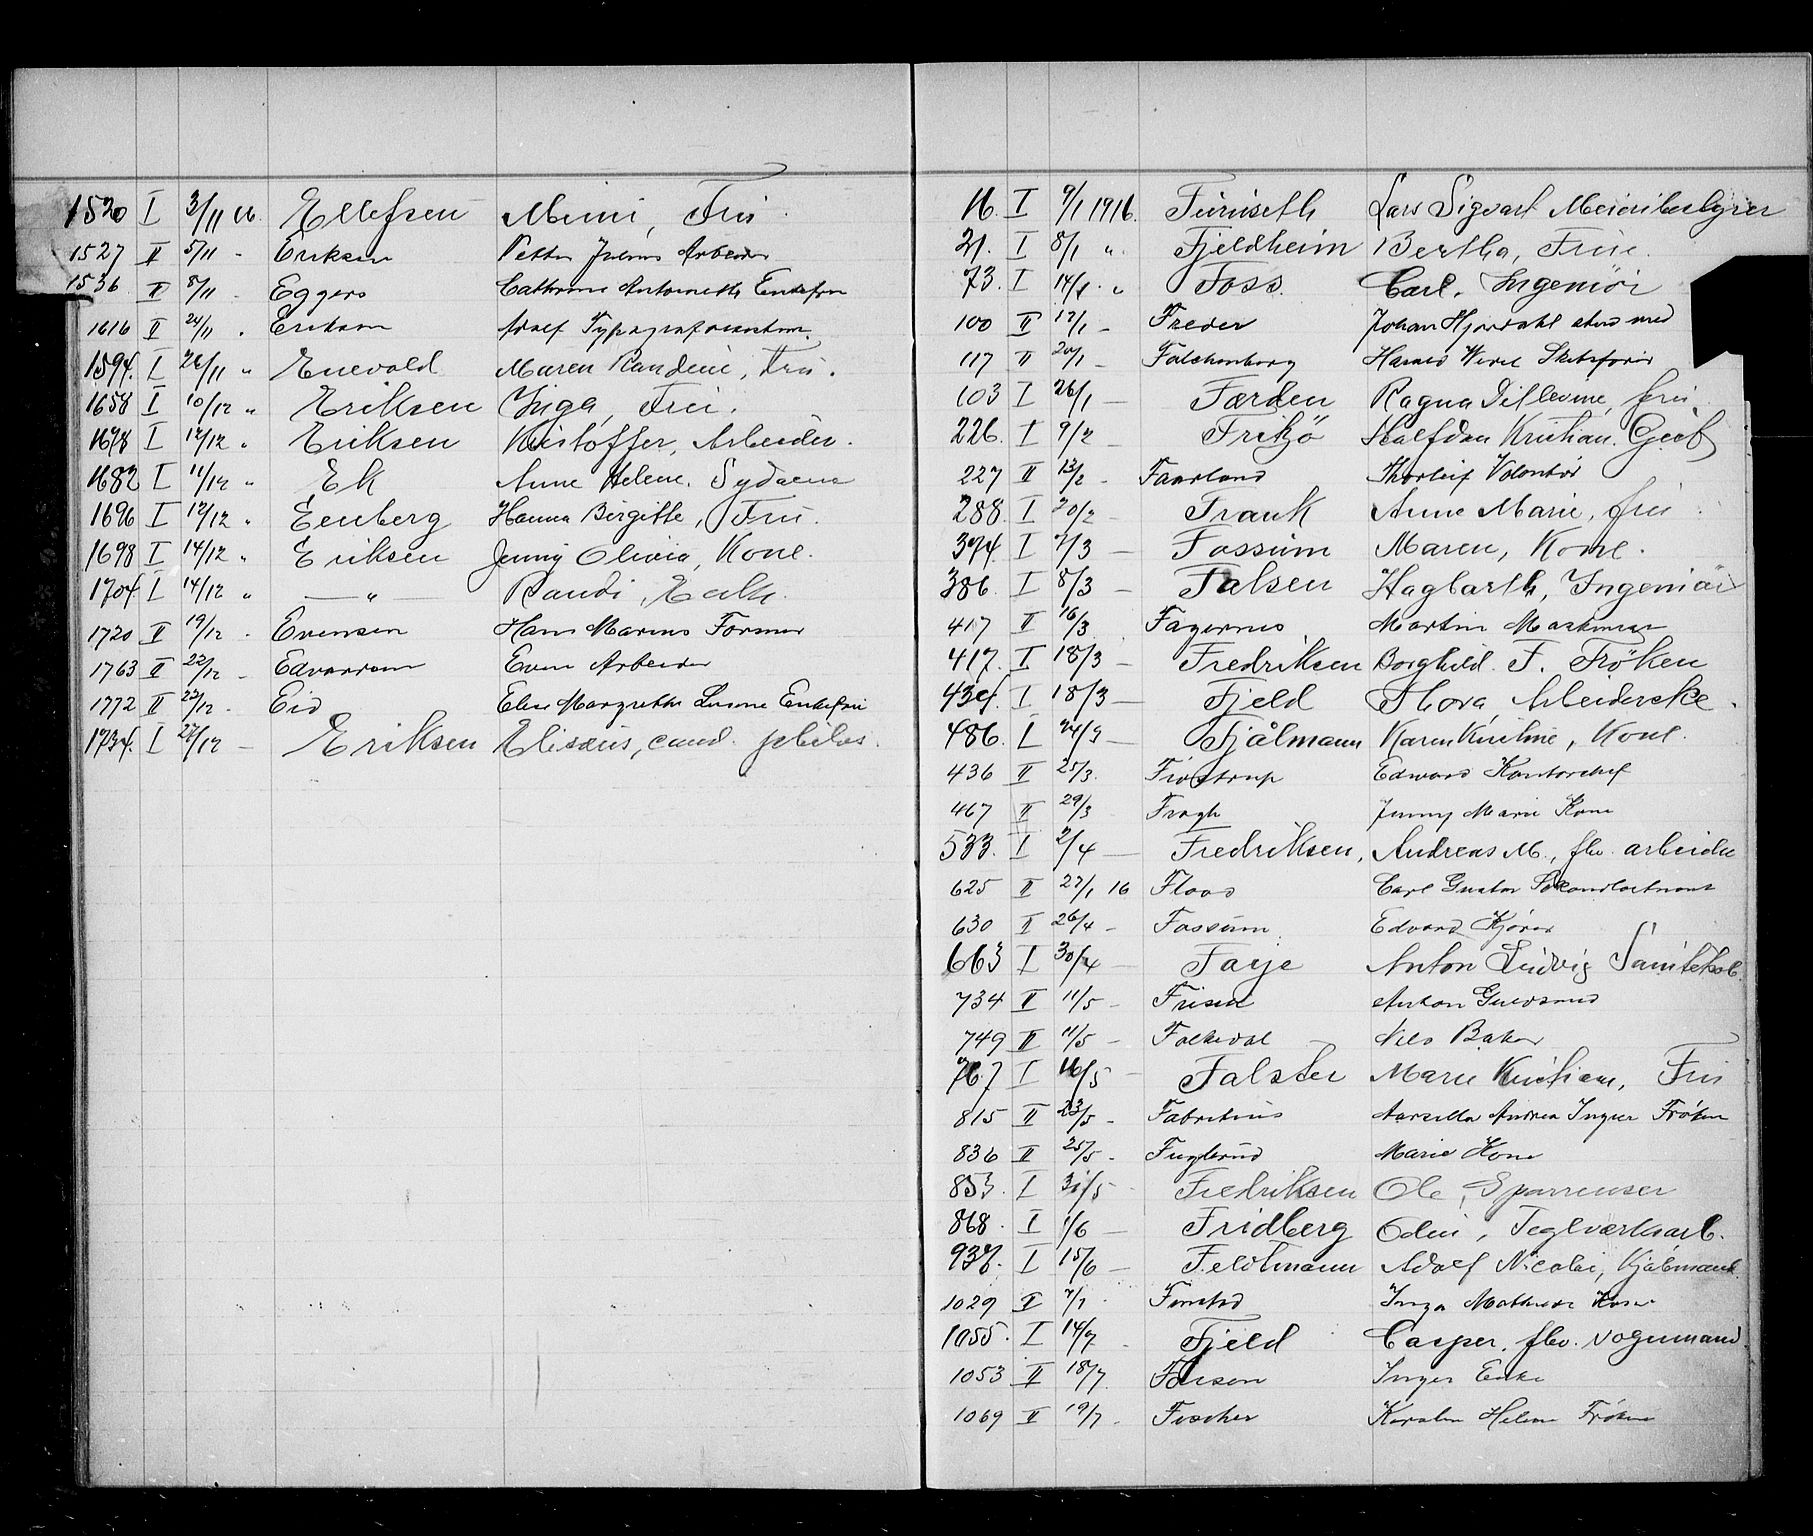 1520 I 3/11 16. Ellefsen Mimi, Fru
1527 II 5/11 - Eriksen Petter Julius Arbeider
1536 II 8/11 - Eggers Cathrine Antoinette Enkefru
1616 II 24/11 Eriksen Adolf
1594. I 24/11 " Enevold Maren Randine, Fru.
1658 I 10/12 " Eriksen Inga, Fru.
1678 I 12/12 " Eriksen Kristoffer, Arbeider.
1682 I 11/12 " Ek Anne Helene. Sydame
1696 I 12/12 " Eenberg Hanna Birgitte, Fru.
1698 I 14/12 " Eriksen Jenny Olivia, Kone.
1704. I 14/12 " — " — Randi, Enke.
1720 II 19/12 - Evensen Hans Marius Former
1763 II 22/12 - Edvardsen Even Arbeider
1772 II 22/12 - Eid Elise Margrethe Enkefru
1734. I 27/12 — Eriksen Elisæus, cand. philos.
16. I 9/1 1916. Furuseth Lars Sigvart Meieribestyrer
21. I 8/1 " Fjeldheim Bertha, Frue.
73. I 14/1 " Foss. Carl. Ingeniør
100 II 17/1 - Freder Johan Hjordahl
117 II 20/1 - Falckenberg Harald
103 I 26/1 — Færden Ragna Ditlevine, fru
226. I 9/2 - Frikjö Halfdan Kristian.
227 II 13/2 - Faarlund Thorleif Volontør
288. I 20/2 - Frank Anne Marie, fru.
374. I 7/3 — Fossum Maren, Kone.
386. I 8/3 — Falsen Hagbarth, Ingeniør
417 II 16/3 Fagernes Martin Maskinist
417. I 18/3 — Fredriksen Borghild. F. Frøken
434. I 18/3 — Fjeld Thora Arbeiderske.
486. I 24/3 — Fjälmann Karen Kirstine, Kone.
436 II 25/3. Edward Kontorchef
467 II 29/3 Fragh Jenny Marie Kone
533. I 2/4 — Fredriksen, Andreas M., fhv. arbeider
625 II 27/1 16 Floos Carl Gustav
630 II 26/4 - Fossum Edvard Kjører
663 I 30/4 — Farje Anton Ludvig
734 II 11/5 - Anton
749 II 11/5 - Falkedal Nils Baker
767 I 16/5 — Falster Marie Kristiane, Fru
815 II 23/5 - Fabritius Andrea Inger Frøken
836 II 25/5 - Fuglerud Marie Kone
853. I 31/5 - Fredriksen Ole, Sporrenser
868. I 1/6 — Fridberg Odin, Teglværksarb.
937. I 15/6 — Feldtmann Adolf Nicolai, Kjøbmand.
1029 II 7/7 - Finstad Inga Mathilde Kone
1055. I 14/7 - Fjeld Casper, fhv. vognmand
1053 II 18/7 Inger Enke
1069 II 19/7 - Fischer Karoline Helene Frøken